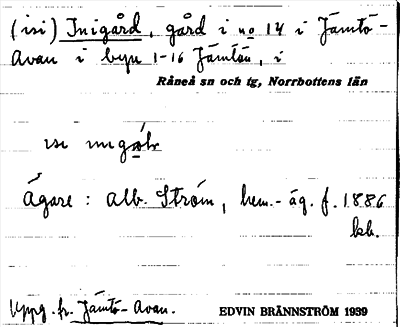 (isi) Inigård, gård i no 14 i Jämtö-
Avan i byn 1-16 Jämtön, i
Råneå sn och tg, Norrbottens län
Ägare: Alb. Ström, hem.-äg. f. 1886
kb.
Uppg. fr. Jämtö-Avan.
EDVIN BRÄNNSTRÖM 1939